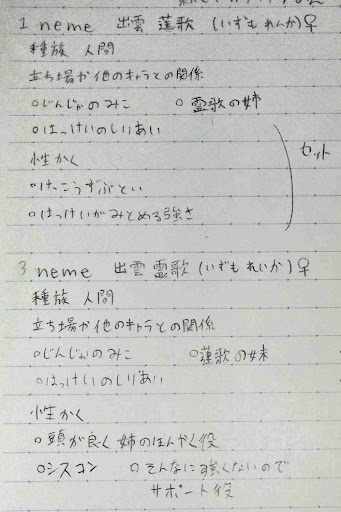 1 neme 出雲 蓮歌 (いずも れんか)♀
種族 人間
立ち場か他のキャラとの関係
○じんじゃのみこ ○霊歌の姉
○はっけいのしりあい
性かく
○けっこうずぶとい
○はっけいがみとめる強さ
セット
3 neme 出雲 霊歌 (いずも れいか)♀
種族 人間
立ち場か他のキャラとの関係
○じんじゃのみこ ○蓮歌の妹
○はっけいのしりあい
性かく
○頭が良く 姉のほんやく役
○シスコン ○そんなに強くないので
サポート役